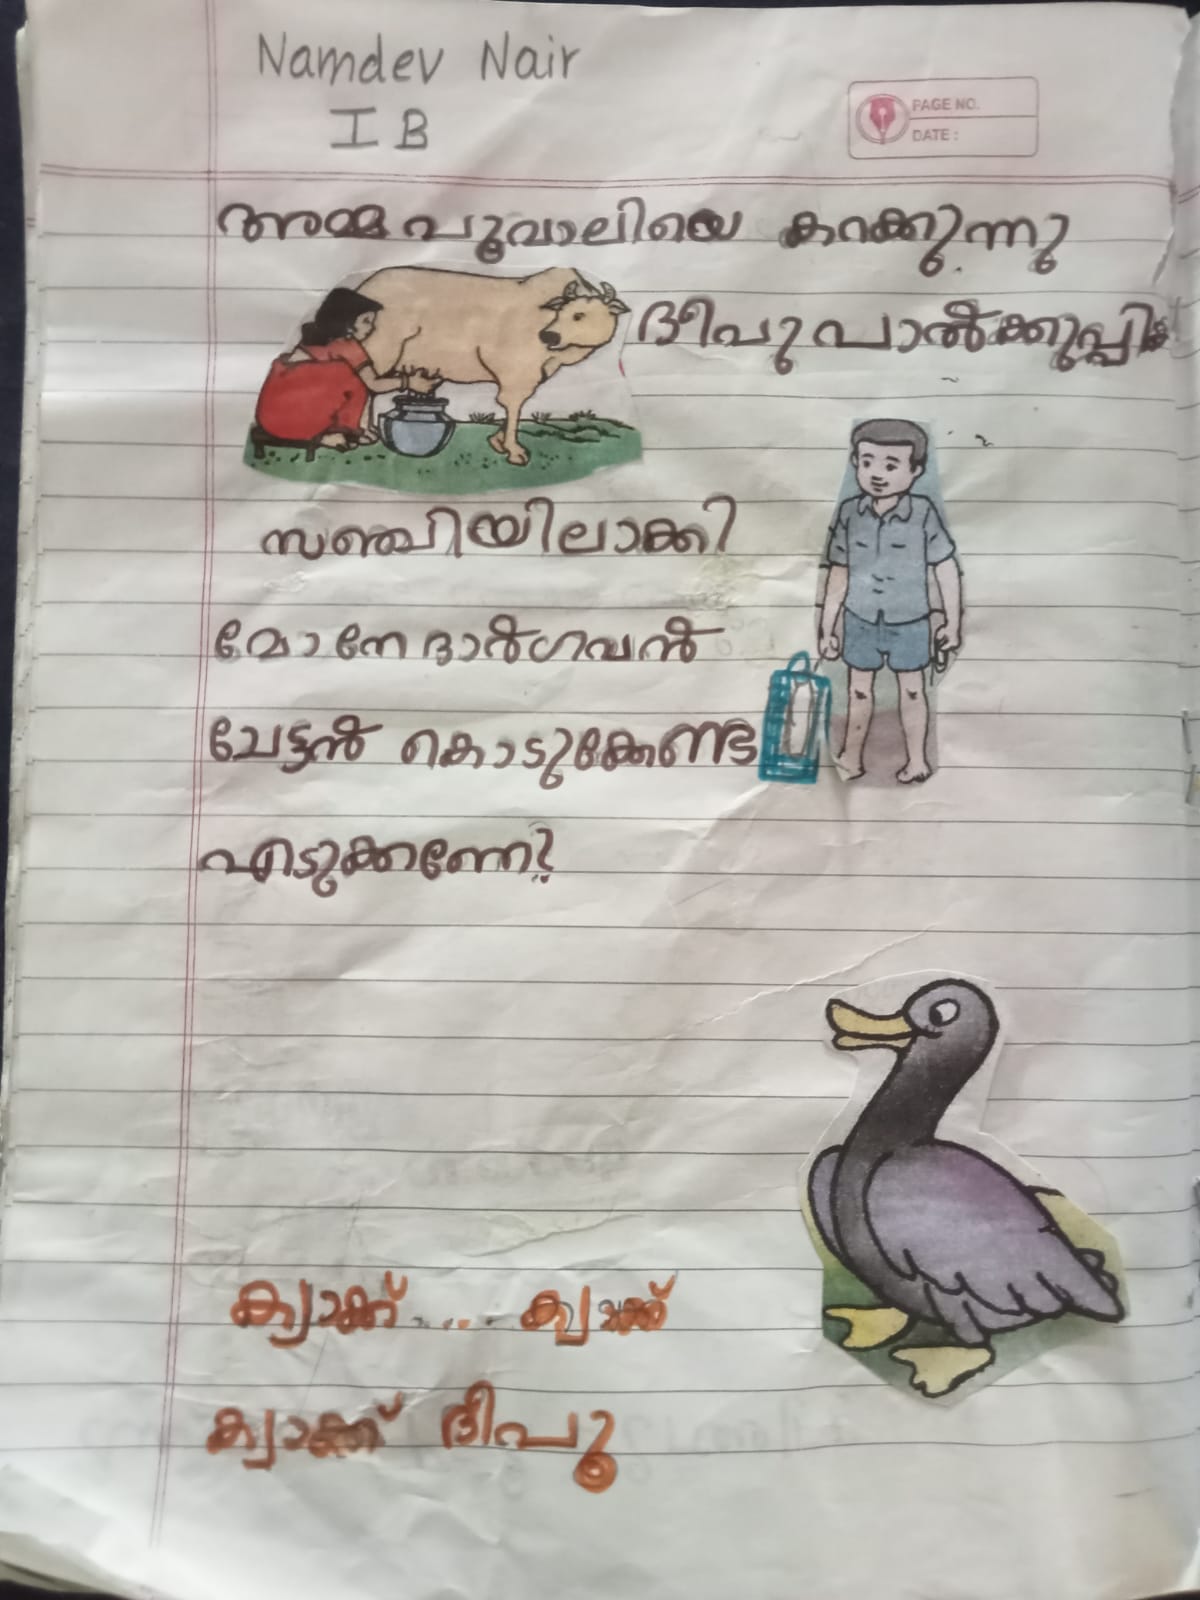 Namdev Nair
I B
PAGE NO.
DATE :
അമ്മ പൂവാലിയെ കറക്കുന്നു
ദീപു പാൽക്കുപ്പി
സഞ്ചിയിലാക്കി
മോനേ ഭാർഗവൻ
ചേട്ടൻ കൊടുക്കേണ്ട
എടുക്കണേ?
ക്വാക്ക് .... ക്വാക്ക്
ക്വാക്ക് ദീപു